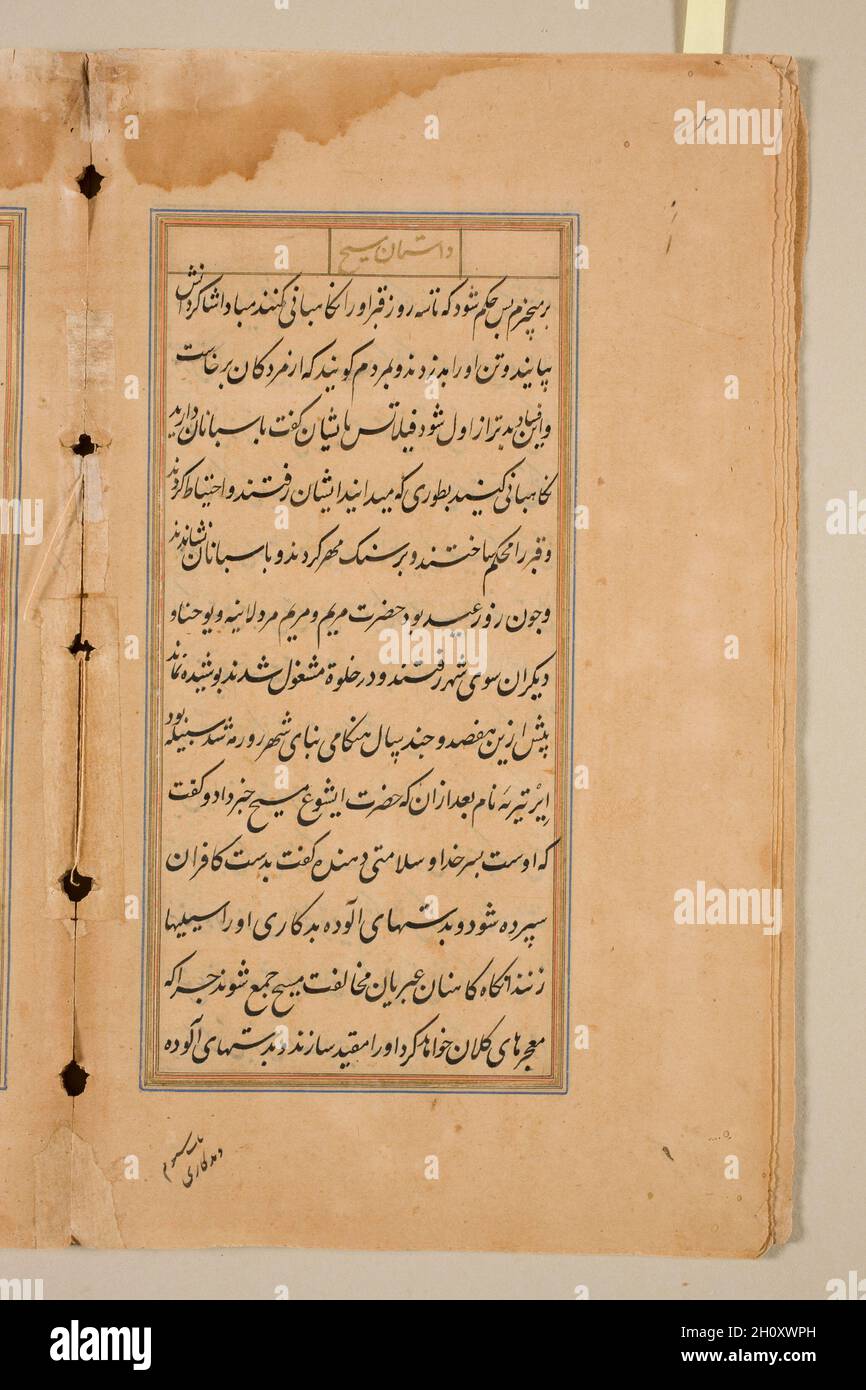 داستان مسیح
برمیخیزم بس حکم شود که تا سه روز قبر او را نکاهبانی کنند مبادا شاکردانش
بیایند و تن او را بدزدند و بمردم کویند که از مردکان برخاست
و این فساد بدتر از اول شود فیلاتس بایشان کفت باسبانان دارید
نکاهبانی کنید بطوری که میدانید ایشان رفتند و احتیاط کردند
و قبر را محکم ساختند و بر سنک مهر کردند و باسبانان نشاندند
و جون روز عید بود حضرت مریم و مریم مردلانیه و یوحنا و
دیکران سوی شهر رفتند و در خلوة مشغول شدند بوشیده نماند
پیش ازین هفصد و جند سال هنکامی بنای شهر رومه شد سبیله بود
نام بعد ازان که حضرت ایشوع مسیح خبر داد و کفت
که اوست بسر خدا و سلامتی دهنده کفت بدست کافران
سپرده شود و بدستهای آلوده بدکاری او را سیلیها
زنند آنکاه کاهنان عبریان مخالفت مسیح جمع شوند جرا که
معجزهای کلان خواهد کرد او را مقید سازند و بدستهای آلوده
باب سیوم
و بدکاری
alamy
Image ID: 2H0XWPH
www.alamy.com